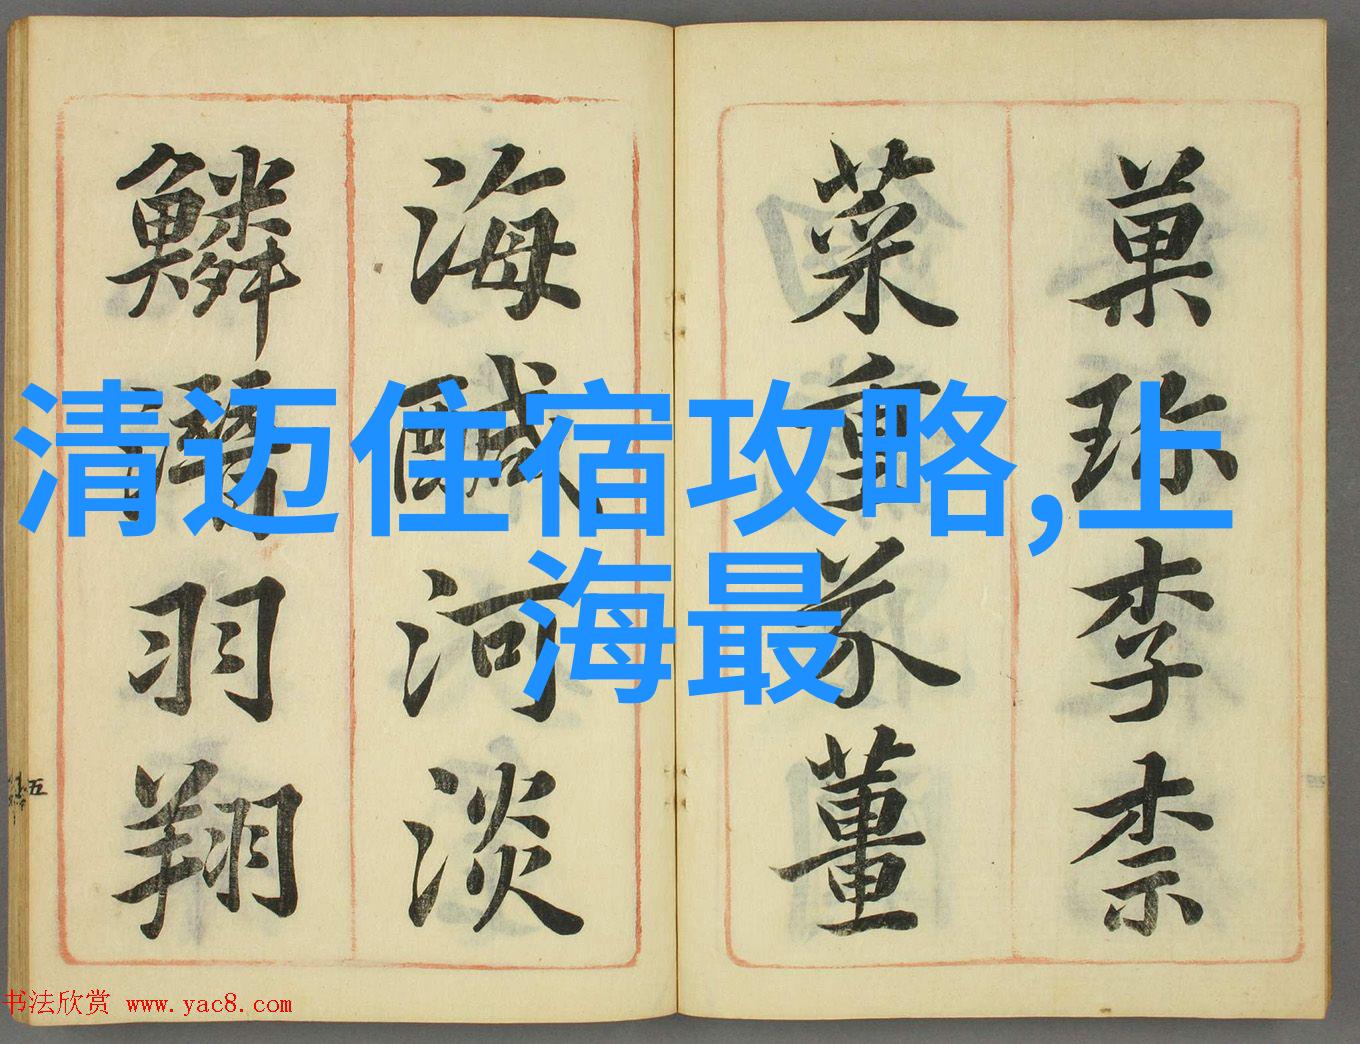 菓珎李柰
菜重芥薑
海醎河淡
鱗潛羽翔
五
清迈住宿攻略,上
海最
书法欣赏 www.yac8.com